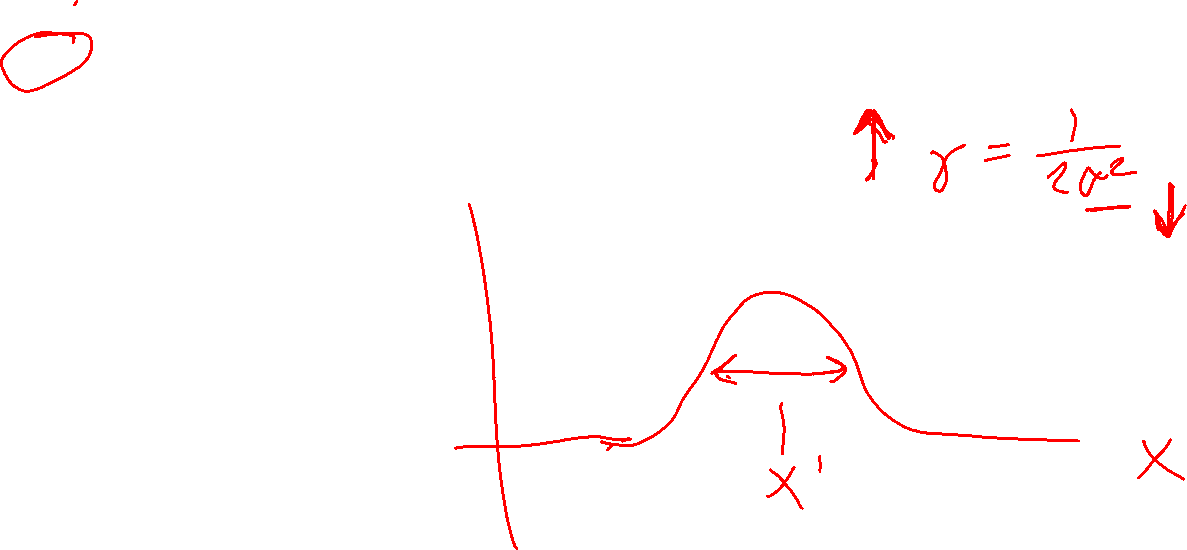 ↑ γ = 1/2σ² ↓
x' x